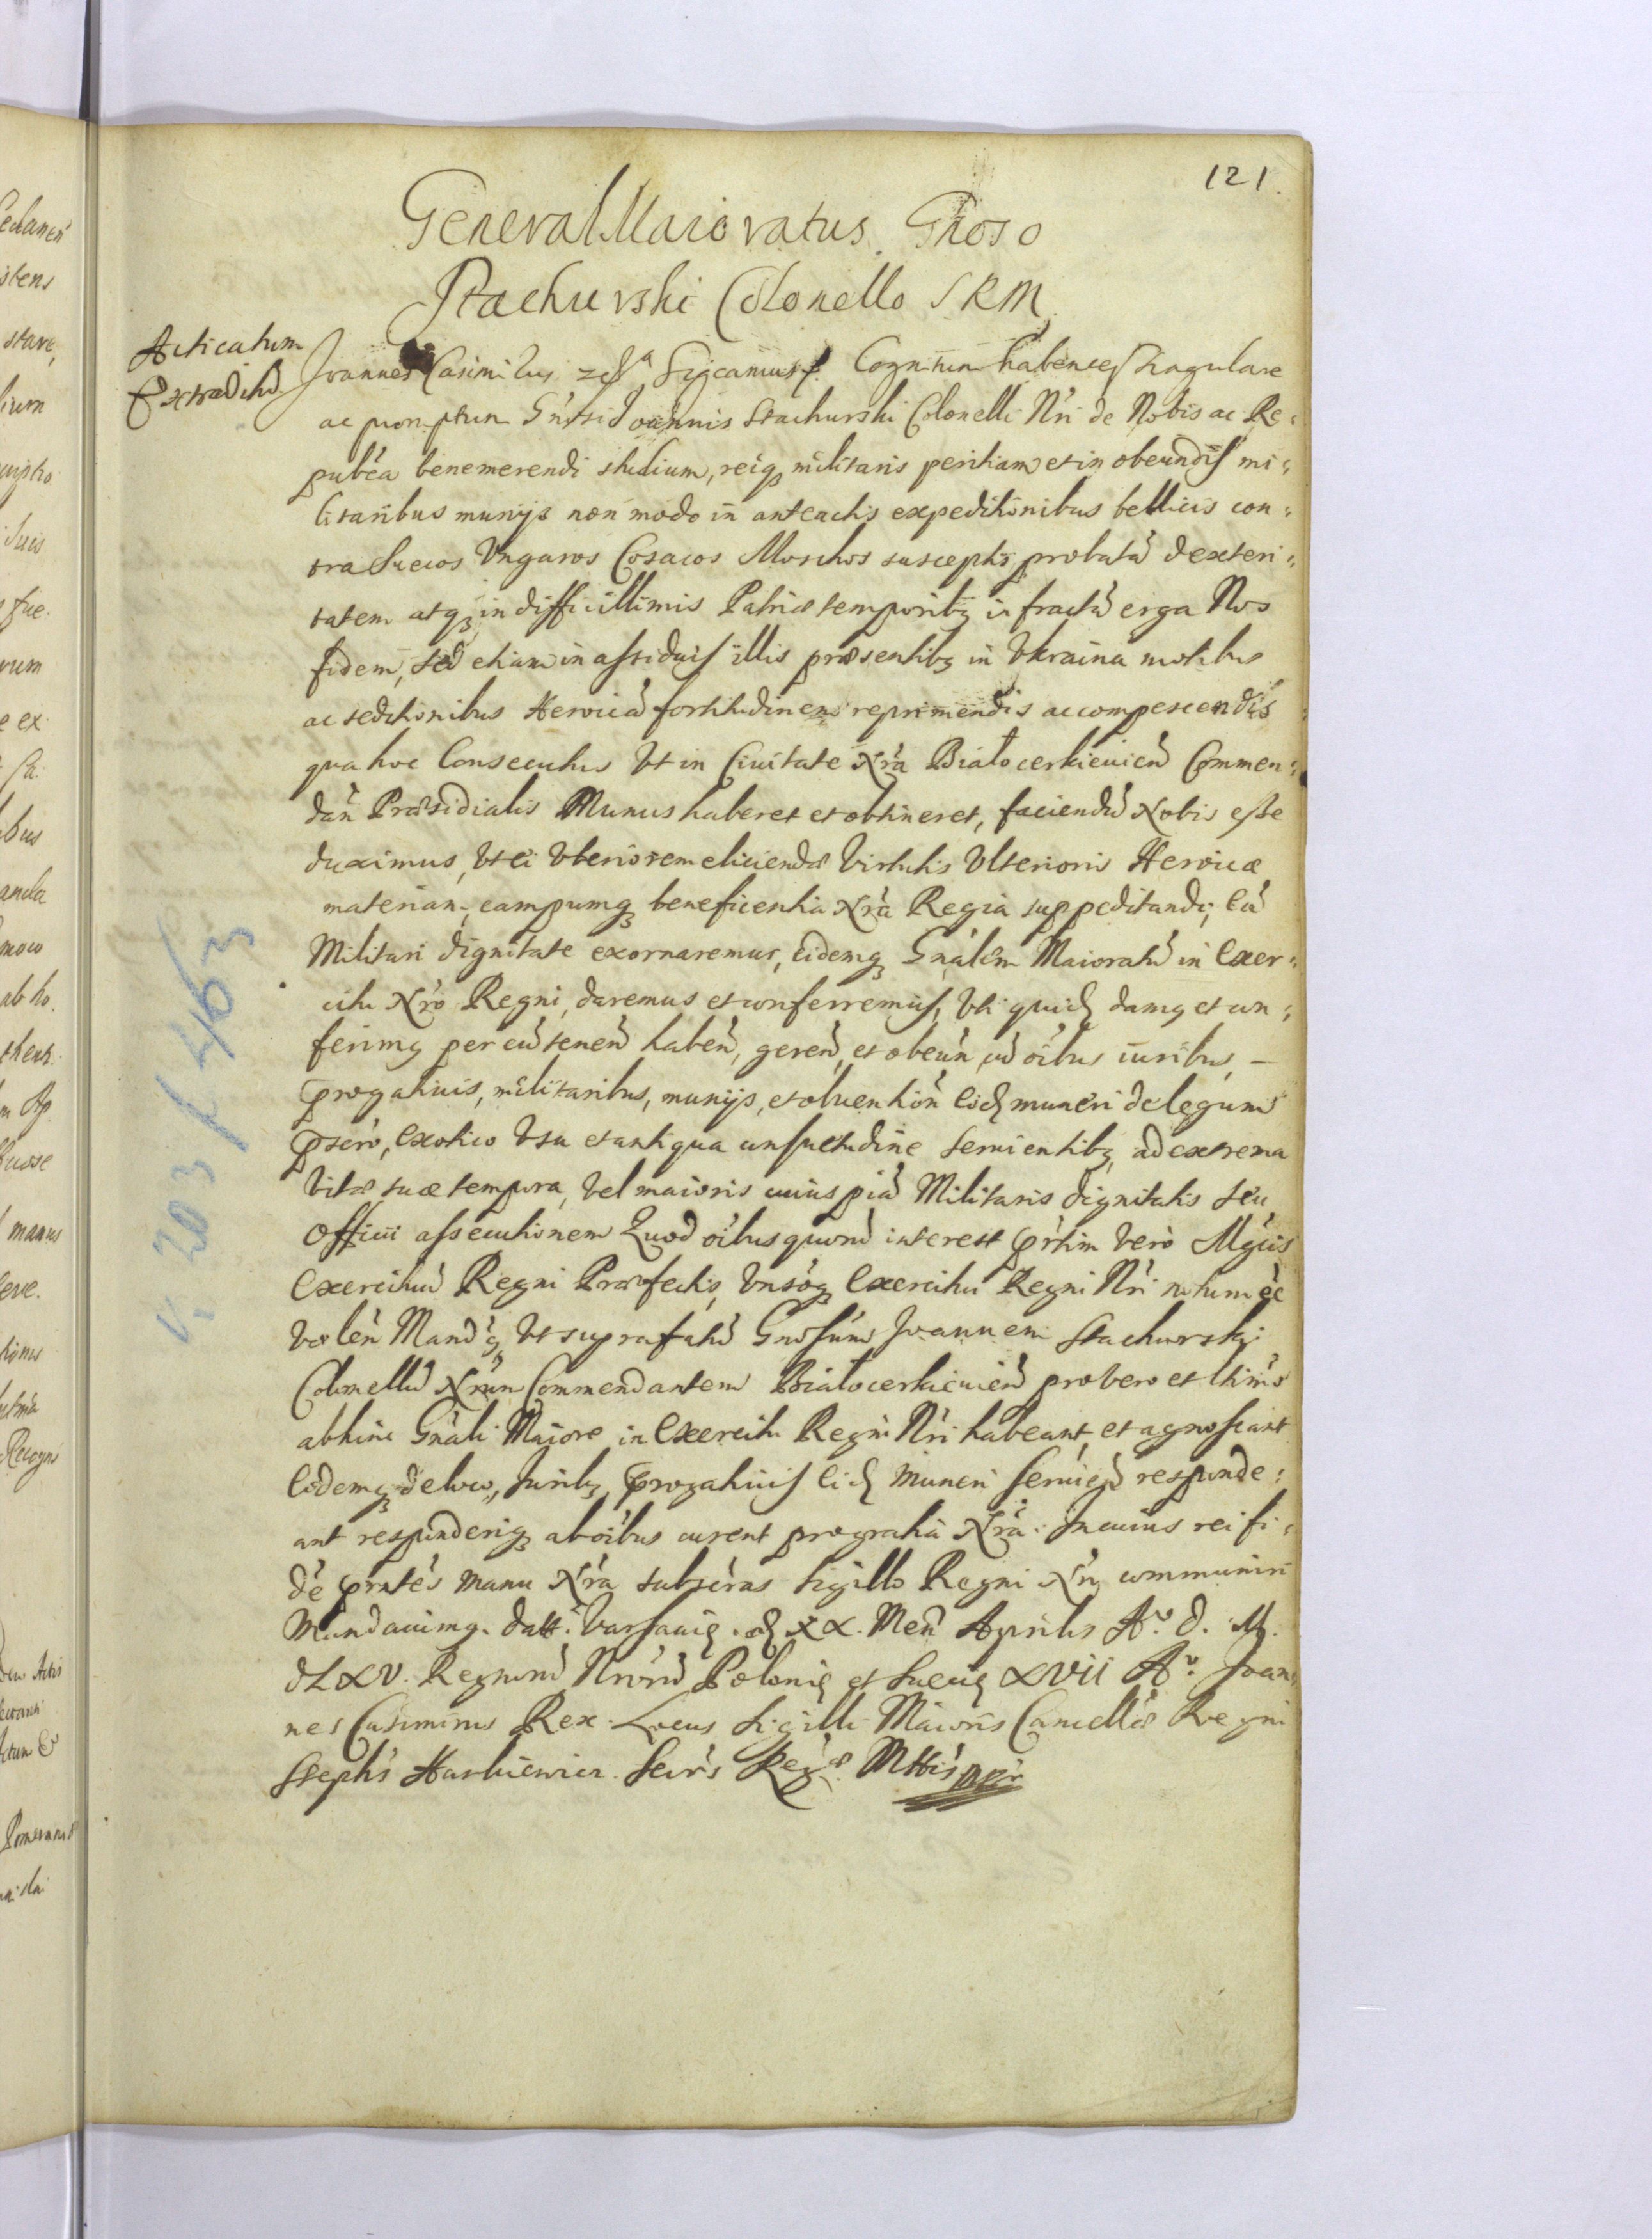 121.
General Maioratus Gnoso
Stachurski Colonello SRM
Acticatum
Extraditū
Joannes Casimirus Sigcamus. Cognitum habentes singulare
ac promptum Gnsi Joannis Stachurski Colonelli Nri de Nobis ac Re:
pubca benemerendi studium, reiq militaris peritiam et in obeundis mi:
litaribus munijs non modo in anteactis expeditionibus bellicis con:
tra Suecos Ungaros Cosacos Moschos susceptis probatā dexteri:
tatem atq in difficillimis Patriæ temporibq infractā erga Nos
fidem, sed etiam in assiduis illis præsentibq in Ukraina motibus
ac seditionibus Heroicā fortitudinem reprimendis ac compescendis
qua hoc Consecutus Ut in Civitate Nrā Białocerkieuien Commen:
dān Præsidialis Munus haberet et obtineret, faciendū Nobis esse
duximus, Ut ei Uberiorem eliciendæ Virtutis Ulterioris Heroicæ
materiam, campumq beneficentia Nrā Regia suppeditandi, Eā
Militari dignitate exornaremus, Eidemq Gnalem Maioratū in Exer:
citu Nrō Regni, daremus et conferremus, Uti quidē damq et con:
ferimq per eū tenen haben, geren, et obeun, cū oibus iuribus, —
progativis, militaribus, munijs, et obvention eidē muneri de legum
pscrō, Exotico Usu et antiqua consuetudine servientibq, ad extrema
Vitæ suæ tempora, Vel maioris cuiuspiā Militaris dignitatis seu
Officii assecutionem Quod oibus quorū interest prtim Verò Mgcis
Exercituū Regni Præfectis, Unsōq Exercitui Regni Nri notum ēē
volēn Mandq, Ut suprafatū Gnosum Joannem Stachurski
Colonellū Nrum Commendantem Białocerkieuien pro Vero et ltimo
abhinc Gnāli Maiore in Exercitu Regni Nri habeant, et agnoscant
Eidemq de loco, Juribq, progativis Eidē Muneri servien responde:
ant responderiq ab oibus curent pro gratia Nrā. In cuius rei fi:
dē prntēs manu Nrā subscras Sigillo Regni Nri communiri
Mandavimq. Datt. Varsaviæ. dē XX. Men Aprilis Aº. D. M.
DLXV. Regnorū Nrorū Poloniæ et Sueciæ XVII Aº. Joan:
nes Casimirus Rex. Locus Sigilli Maioris Cancellæ Regni
Stephs Hankiewicz. Secrs Regæ Mttis mpr
V. 203 f 463